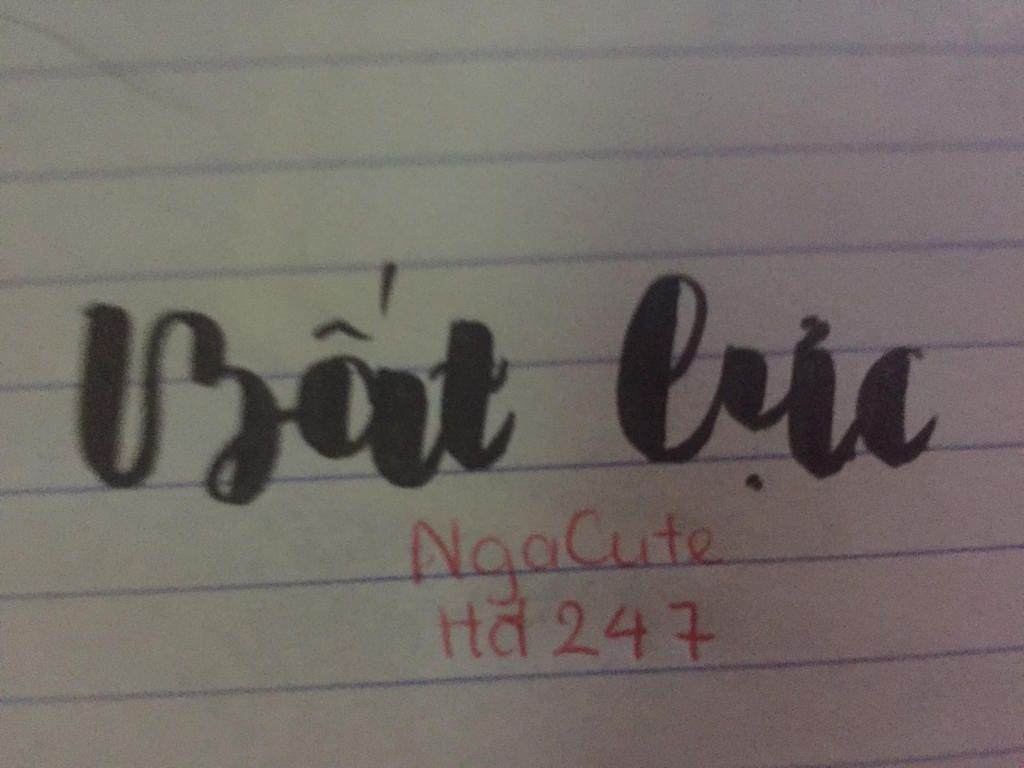 Bất lực
NgaCute
Hd 247